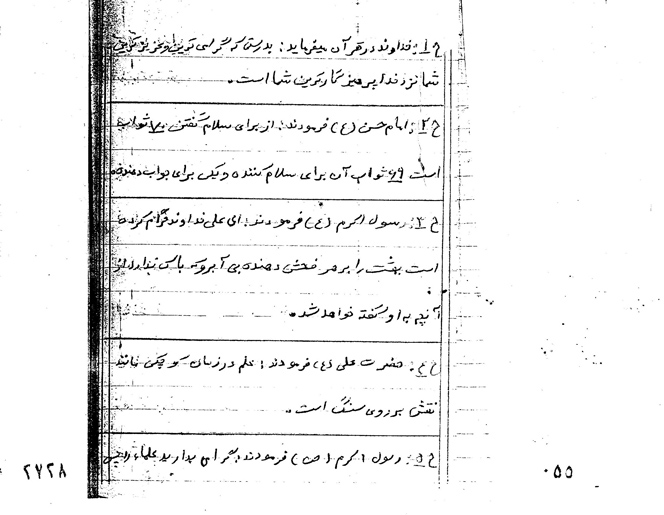 ح۱: خداوند در قرآن میفرماید: بدرستی که گرامی ترین و عزیز ترین
شما نزد خدا پرهیزگارترین شما است.
ح۲: امام حسن (ع) فرمودند: از برای سلام گفتن ۷۰ ثواب
است ۶۹ ثواب آن برای سلام کننده و یکی برای جواب دهنده
ح۳: رسول اکرم (ع) فرمودند: ای علی خداوند حرام کرده
است بهشت را بر هر فحش دهنده بی آبرو که باکی ندارد از
آنچه به او گفته خواهد شد.
ح۴: حضرت علی (ع) فرمودند: علم در زمان کوچکی مانند
نقش بر روی سنگ است.
ح۵: رسول اکرم (ص) فرمودند: گرامی بدارید علماء
۲۷۲۸
۰۵۵